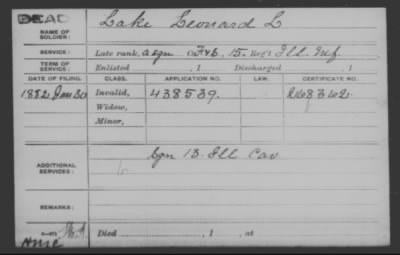 DEAD
NAME OF SOLDIER: Lake Leonard L
SERVICE: Late rank, a Sgn Co. F & S, 15 Reg't Ill. Inf.
TERM OF SERVICE: Enlisted , 1 Discharged , 1
DATE OF FILING. CLASS. APPLICATION NO. LAW. CERTIFICATE NO.
1882 Jan 30 Invalid, 438539.
Widow,
Minor,
ADDITIONAL SERVICES: Sgn 13. Ill Cav
REMARKS:
Died , 1 , at